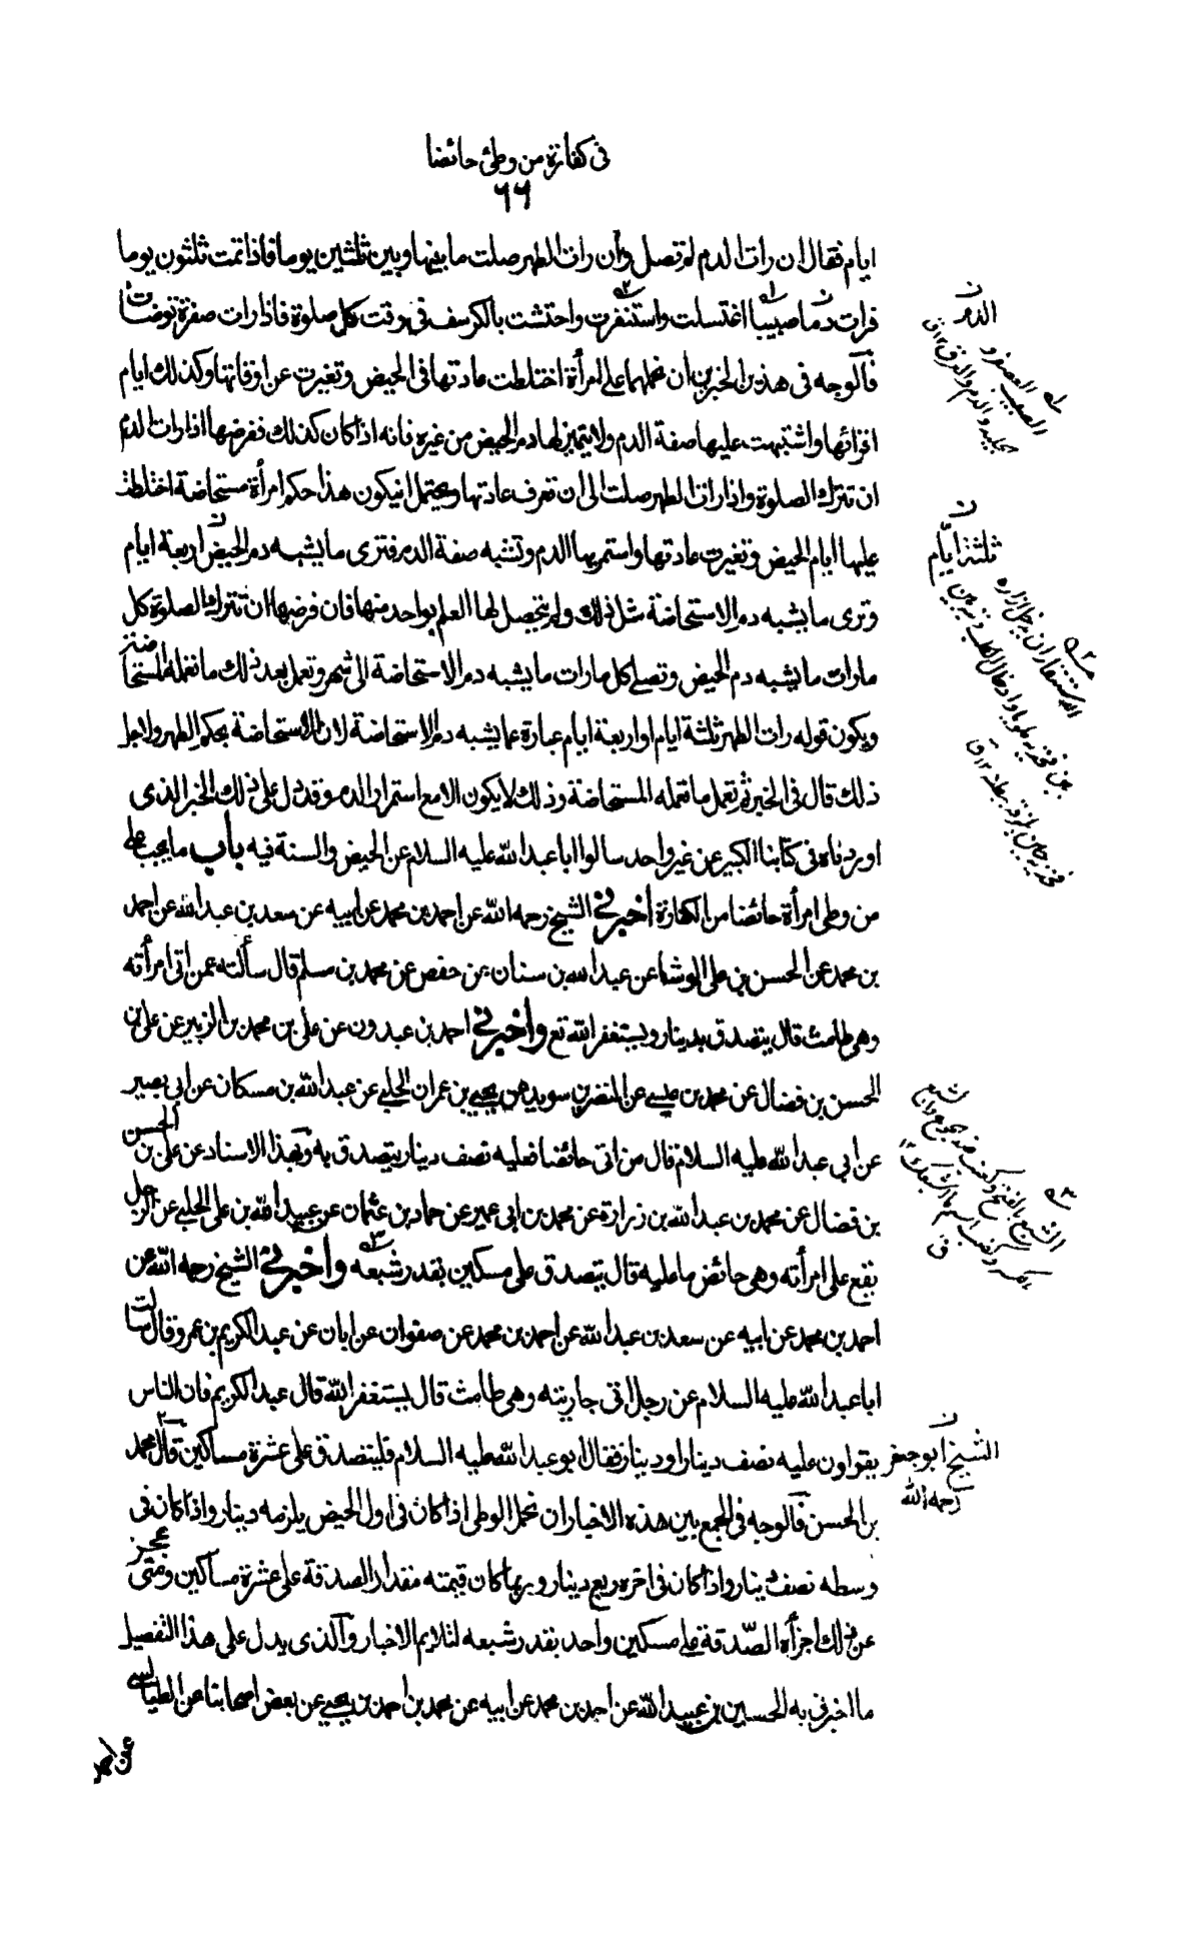 فى كفارة من وطئ حائضا
٦٦
ايام فقال ان رات الدم لم تصل وان رات الطهر صلت ما بينها وبين ثلثين يوما فاذا تمت ثلثون يوما
فرات دما صبيبا اغتسلت واستثفرت واحتشت بالكرسف فى وقت كل صلوة فاذا رات صفرة توضات
فالوجه فى هذين الخبرين ان نحملهما على امرأة اختلطت عادتها فى الحيض وتغيرت عن اوقاتها وكذلك ايام
اقرائها واشتبهت عليها صفة الدم ولا يتميز لها دم الحيض من غيره فانه اذا كان كذلك ففرضها اذا رات الدم
ان تترك الصلوة واذا رات الطهر صلت الى ان تعرف عادتها ويحتمل انيكون هذا حكم امرأة مستحاضة اختلطت
عليها ايام الحيض وتغيرت عادتها واستمر بها الدم وتشبه صفة الدم فترى ما يشبه دم الحيض اربعة ايام
وترى ما يشبه دم الاستحاضة مثل ذلك ولم يتحصل لها العلم بواحد منها فان فرضها ان تترك الصلوة كل
مارات ما يشبه دم الحيض وتصلى كل مارات ما يشبه دم الاستحاضة الى شهر وتعمل بعد ذلك ما تعمله المستحاضة
ويكون قوله رات الطهر ثلثة ايام او اربعة ايام عبارة عما يشبه دم الاستحاضة لان الاستحاضة بحكم الطهر ولاجل
ذلك قال فى الخبر ثم تعمل ما تعمله المستحاضة وذلك لا يكون الا مع استمرار الدم وقد دل على ذلك الخبر الذى
اوردناه فى كتابنا الكبير عن غير واحد سالوا ابا عبد الله عليه السلام عن الحيض والسنة فيه باب ما يجب على
من وطى امرأة حائضا من الكفارة اخبرنى الشيخ رحمه الله عن احمد بن محمد عن ابيه عن سعد بن عبد الله عن احمد
بن محمد عن الحسن بن على الوشا عن عبد الله بن سنان عن حفص عن محمد بن مسلم قال سألته عمن اتى امرأته
وهى طامث قال يتصدق بدينار ويستغفر الله تع واخبرنى احمد بن عبدون عن على بن محمد بن الزبير عن على بن
الحسن بن فضال عن محمد بن عيسى عن النضر بن سويد عن يحيى بن عمران الحلبى عن عبد الله بن مسكان عن ابى بصير
عن ابى عبد الله عليه السلام قال من اتى حائضا فعليه نصف دينار يتصدق به وبهذا الاسناد عن على بن الحسن
بن فضال عن محمد بن عبد الله بن زرارة عن محمد بن ابى عمير عن حماد بن عثمان عن عبيد الله بن على الحلبى عن الرجل
يقع على امرأته وهى حائض ما عليه قال يتصدق على مسكين بقدر شبعه واخبرنى الشيخ رحمه الله عن
احمد بن محمد عن ابيه عن سعد بن عبد الله عن احمد بن محمد عن صفوان عن ابان عن عبد الكريم بن عمرو قال سالت
ابا عبد الله عليه السلام عن رجل اتى جاريته وهى طامث قال يستغفر الله قال عبد الكريم فان الناس
يقولون عليه نصف دينار او دينار فقال ابو عبد الله عليه السلام فليتصدق على عشرة مساكين قال محمد
بن الحسن فالوجه فى الجمع بين هذه الاخبار ان نحمل الوطى اذا كان فى اول الحيض يلزمه دينار واذا كان فى
وسطه نصف دينار واذا كان فى اخره ربع دينار وربما كان قيمته مقدار الصدقة على عشرة مساكين ومتى عجز
عن ذلك اجزأه الصدقة على مسكين واحد بقدر شبعه لتلايم الاخبار والذى يدل على هذا التفصيل
ما اخبرنى به الحسين بن عبيد الله عن احمد بن محمد عن ابيه عن محمد بن احمد بن يحيى عن بعض اصحابنا عن الطيالسى
عن احمد
الدم
ثلثة ايام
الشيخ ابو جعفر
رحمه الله